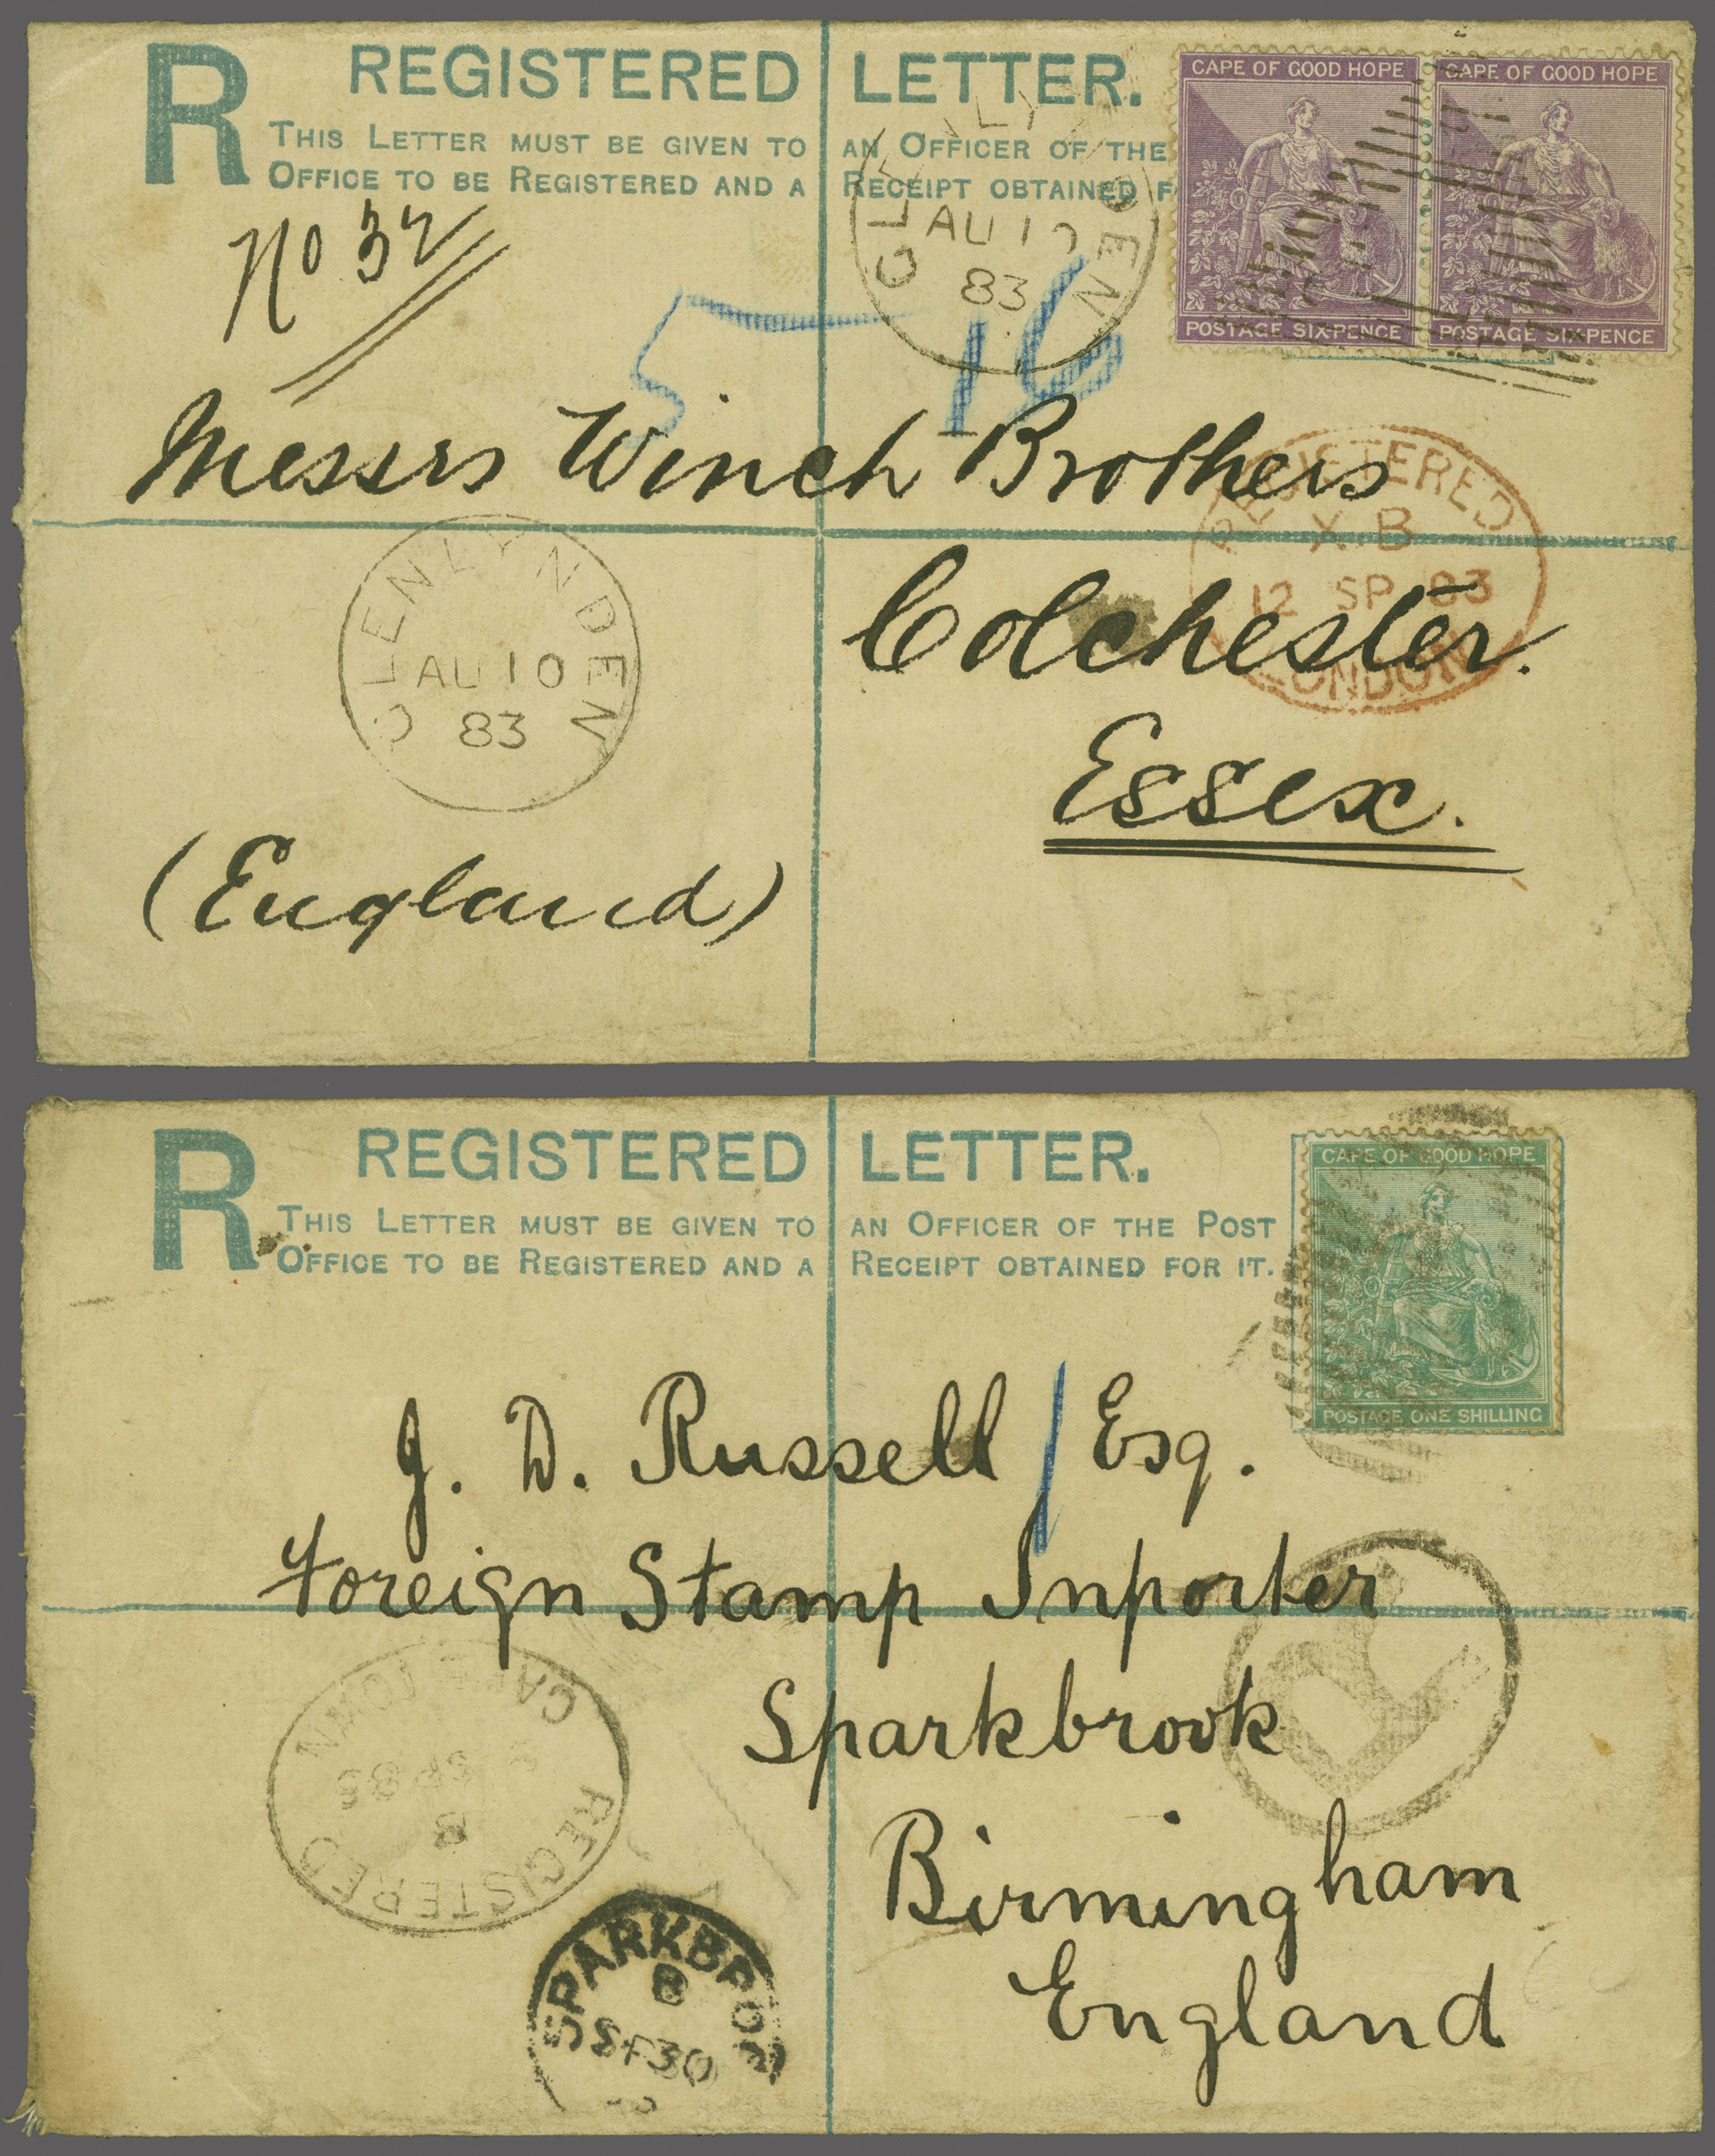 R REGISTERED LETTER.
THIS LETTER MUST BE GIVEN TO AN OFFICER OF THE
OFFICE TO BE REGISTERED AND A RECEIPT OBTAINED F
CAPE OF GOOD HOPE CAPE OF GOOD HOPE
POSTAGE SIX-PENCE POSTAGE SIX-PENCE
No 32
AU 10
83
5 16
Messrs Winch Brothers
REGISTERED
X.B
12 SP 83
LONDON
Colchester.
CLENLYNDEN
AU 10
83
Essex.
(England)
R REGISTERED LETTER.
THIS LETTER MUST BE GIVEN TO AN OFFICER OF THE POST
OFFICE TO BE REGISTERED AND A RECEIPT OBTAINED FOR IT.
CAPE OF GOOD HOPE
POSTAGE ONE SHILLING
J. D. Russell Esq.
Foreign Stamp Inporter
R
Sparkbrook
CAPE TOWN
SP 85
REGISTERED
Birmingham
England
SPARKBROOK
B
SP 30